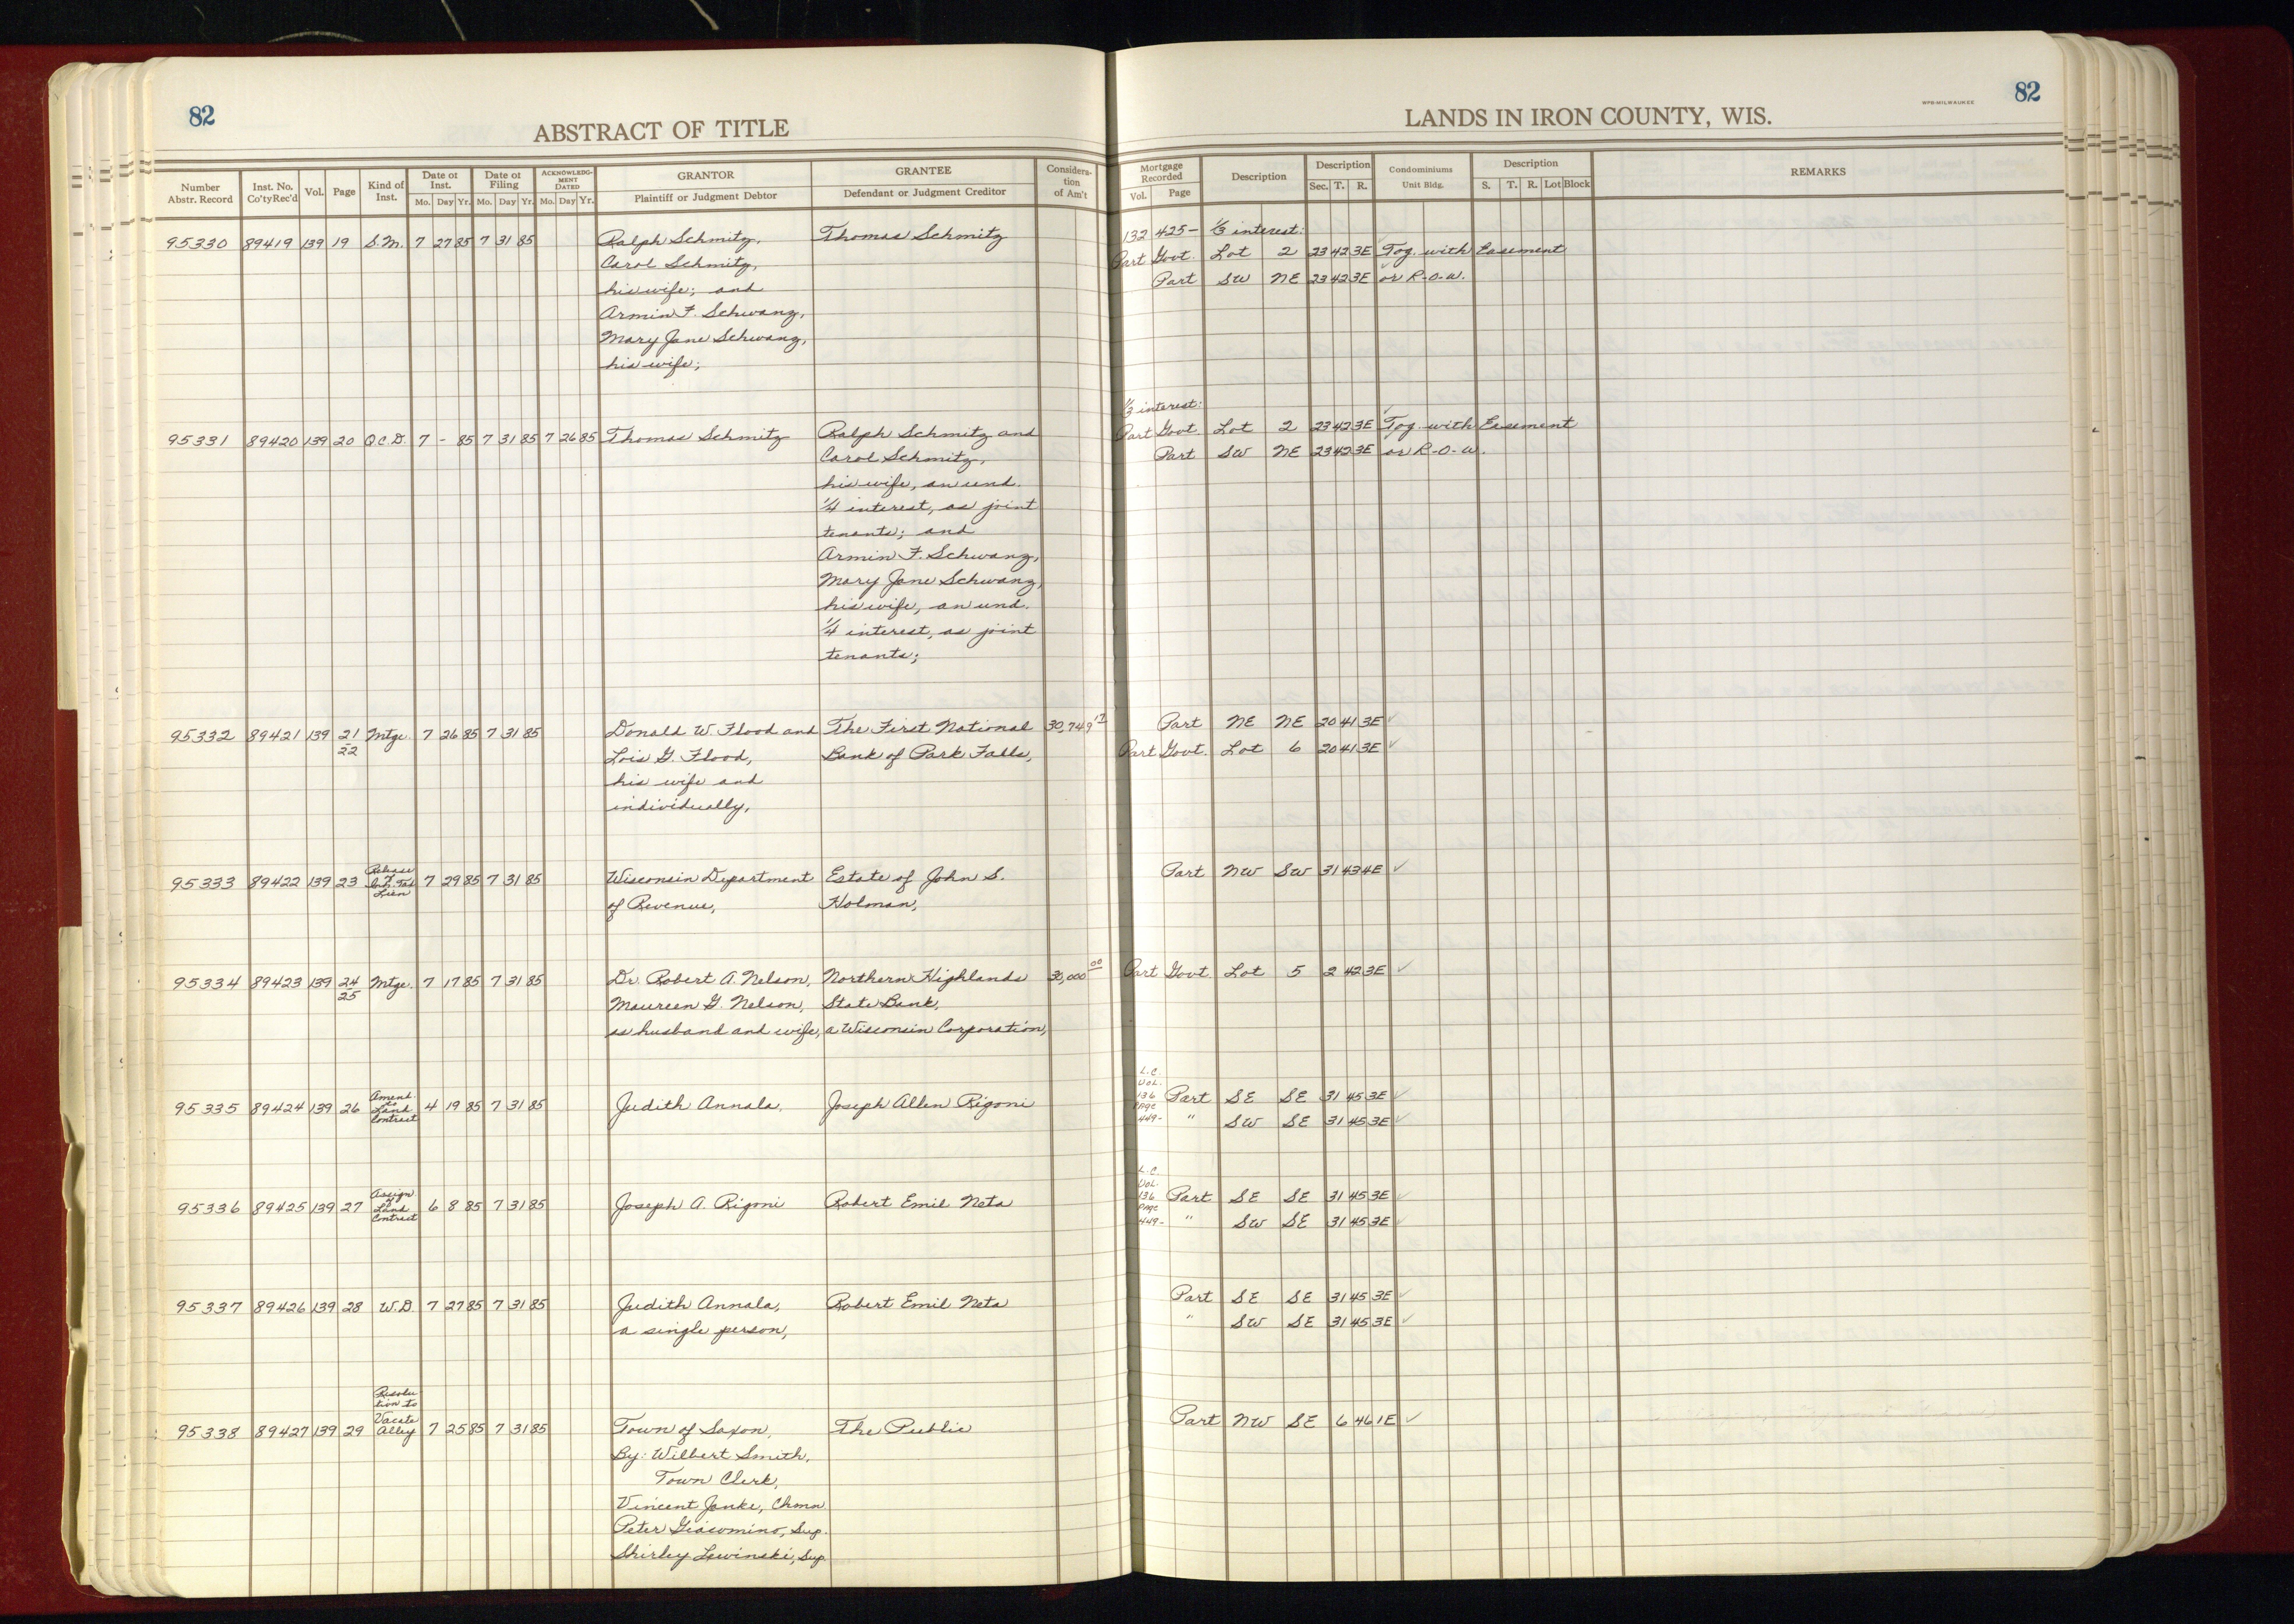 82
ABSTRACT OF TITLE
Number Abstr. Record Inst. No. Co'ty Rec'd Vol. Page Kind of Inst. Date of Inst. Mo. Day Yr. Date of Filing Mo. Day Yr. ACKNOWLEDGMENT DATED Mo. Day Yr. GRANTOR Plaintiff or Judgment Debtor GRANTEE Defendant or Judgment Creditor Consideration of Am't
95330 89419 139 19 S.M. 7 27 85 7 31 85 Ralph Schmitz, Thomas Schmitz
Carol Schmitz,
his wife; and
Armin F. Schwanz,
Mary Jane Schwanz,
his wife;
95331 89420 139 20 Q.C.D. 7 - 85 7 31 85 7 26 85 Thomas Schmitz Ralph Schmitz and
Carol Schmitz,
his wife, an und.
1/4 interest, as joint
tenants; and
Armin F. Schwanz,
Mary Jane Schwanz,
his wife, an und.
1/4 interest, as joint
tenants;
95332 89421 139 21 Mtge. 7 26 85 7 31 85 Donald W. Flood and The First National 30,749 17
22 Lois G. Flood, Bank of Park Falls,
his wife and
individually,
Release
of
95333 89422 139 23 Inh. Tax 7 29 85 7 31 85 Wisconsin Department Estate of John S.
Lien of Revenue, Holman,
95334 89423 139 24 Mtge. 7 17 85 7 31 85 Dr. Robert A. Nelson, Northern Highlands 30,000 00
25 Maureen G. Nelson, State Bank,
as husband and wife, a Wisconsin Corporation,
Amend.
to
95335 89424 139 26 Land 4 19 85 7 31 85 Judith Annala, Joseph Allen Rigoni
Contract
Assign
of
95336 89425 139 27 Land 6 8 85 7 31 85 Joseph A. Rigoni Robert Emil Neta
Contract
95337 89426 139 28 W.D. 7 27 85 7 31 85 Judith Annala, Robert Emil Neta
a single person,
Resolu
tion to
Vacate
95338 89427 139 29 Alley 7 25 85 7 31 85 Town of Saxon, The Public
By: Wilbert Smith,
Town Clerk,
Vincent Janke, Chmn
Peter Giacomino, Sup.
Shirley Lewinski, Sup.
WPB-MILWAUKEE 82
LANDS IN IRON COUNTY, WIS.
Mortgage Recorded Vol. Page Description Description Sec. T. R. Condominiums Unit Bldg. Description S. T. R. Lot Block REMARKS
132 425- 1/3 interest:
Part Govt. Lot 2 23 42 3E Tog. with Easement
Part SW NE 23 42 3E or R-O-W.
1/3 interest:
Part Govt. Lot 2 23 42 3E Tog. with Easement
Part SW NE 23 42 3E or R-O-W.
Part NE NE 20 41 3E ✓
Part Govt. Lot 6 20 41 3E ✓
Part NW SW 31 43 4E ✓
Part Govt Lot 5 2 42 3E ✓
L.C.
Vol.
136 Part SE SE 31 45 3E ✓
Page
449- " SW SE 31 45 3E ✓
L.C.
Vol.
136 Part SE SE 31 45 3E ✓
Page
449- " SW SE 31 45 3E ✓
Part SE SE 31 45 3E ✓
" SW SE 31 45 3E ✓
Part NW SE 6 46 1E ✓